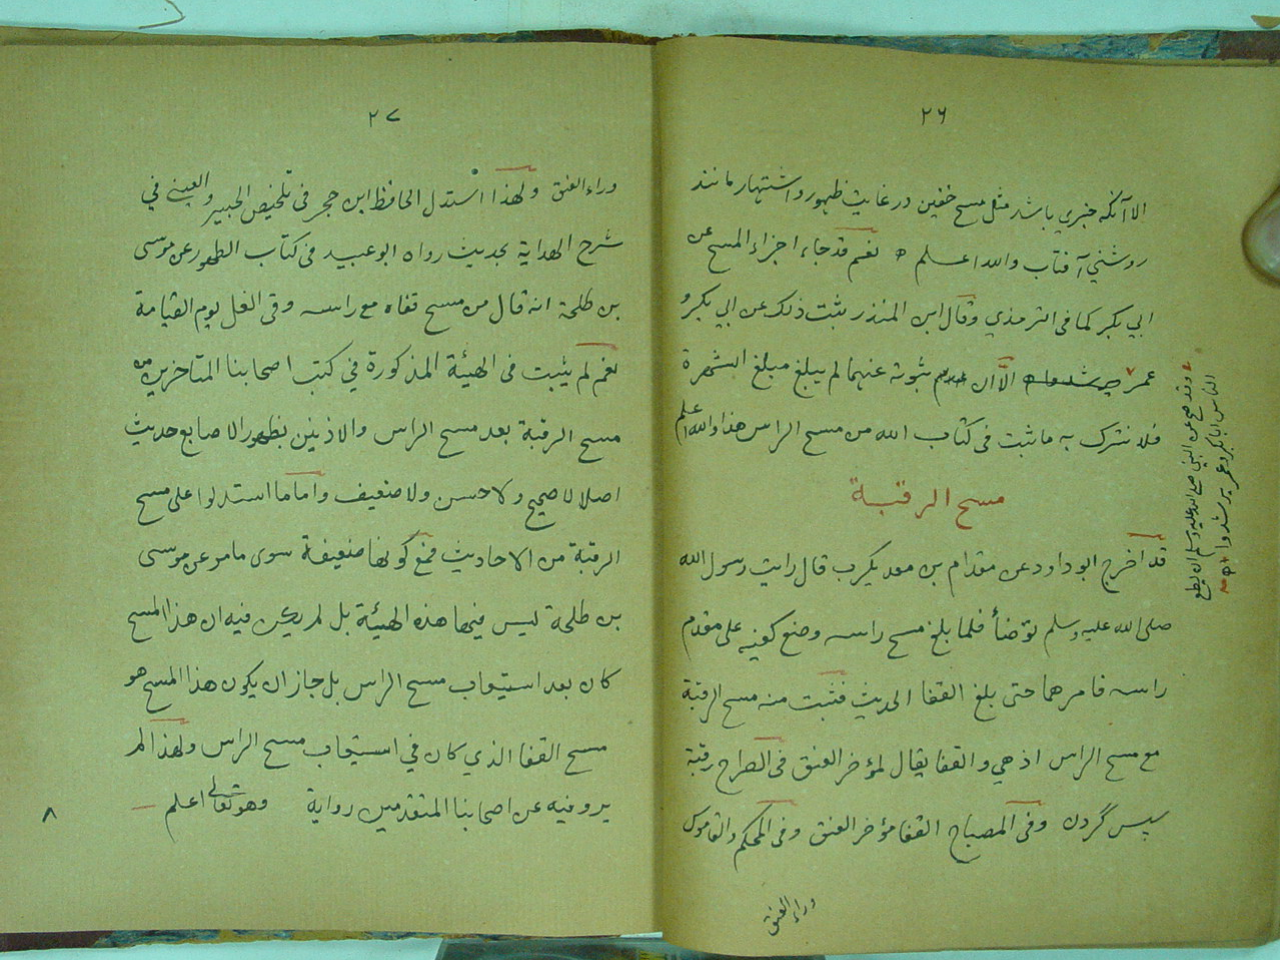 ٢٦
الا آنکه خبری باشد مثل مسح خفین در غایت ظهور و اشتهار مانند
روشنی آفتاب والله اعلم ٥ نعم قد جاء اجزاء المسح عن
ابي بكر كما فى الترمذي وقال ابن المنذر ثبت ذلك عن ابي بكر و
عمر الا ان ثبوته عنهما لم يبلغ مبلغ الشهرة
فلا نترك به ما ثبت فى كتاب الله من مسح الراس هذا والله اعلم
وقد صح عن النبي صلى الله عليه وسلم ان يطع
الناس ابا بكر وعمر يرشدوا صح
مسح الرقبة
قد اخرج ابو داود عن مقدام بن معديكرب قال رايت رسول الله
صلى الله عليه وسلم توضأ فلما بلغ مسح راسه وضع كفيه على مقدم
راسه فامرهما حتى بلغ القفا الحديث فثبت منه مسح الرقبة
مع مسح الراس اذ هي والقفا يقال لمؤخر العنق فى الصراح رقبة
سپس گردن وفى المصباح القفا مؤخر العنق وفى المحكم والقاموس
وراء العنق
٢٧
وراء العنق ولهذا استدل الحافظ ابن حجر فى تلخيص الحبير والعيني في
شرح الهداية بحديث رواه ابو عبيد فى كتاب الطهور عن موسى
بن طلحة انه قال من مسح قفاه مع راسه وقى الغل يوم القيامة
نعم لم يثبت فى الهيئة المذكورة في كتب اصحابنا المتاخرين من
مسح الرقبة بعد مسح الراس والاذنين بظهور الاصابع حديث
اصلا لا صحيح ولا حسن ولا ضعيف واما ما استدلوا على مسح
الرقبة من الاحاديث فمع كونها ضعيفة سوى ما مر عن موسى
بن طلحة ليس فيها هذه الهيئة بل لم يكن فيه ان هذا المسح
كان بعد استيعاب مسح الراس بل جاز ان يكون هذا المسح هو
مسح القفا الذي كان في استيعاب مسح الراس ولهذا لم
يرو فيه عن اصحابنا المتقدمين رواية وهو تعالى اعلم
٨